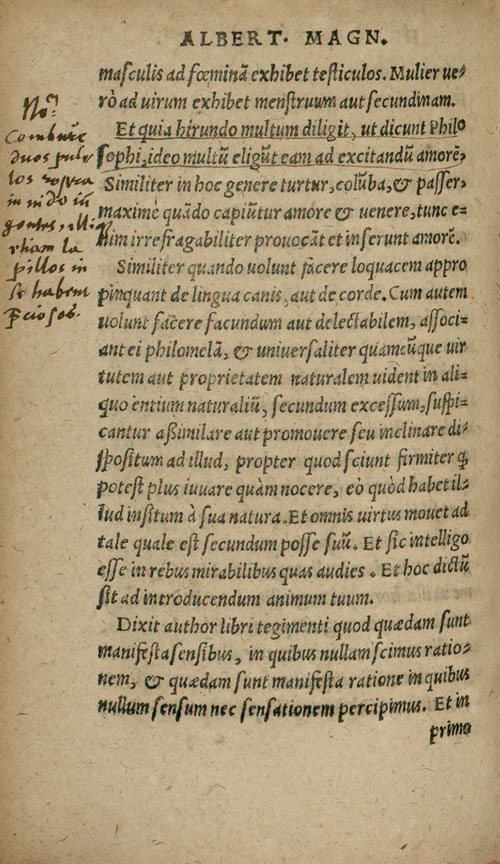 ALBERT. MAGN.
masculis ad fœminã exhibet testiculos. Mulier ue-
rò ad uirum exhibet menstruum aut secundinam.
Et quia hirundo multum diligit, ut dicunt Philo
sophi, ideo multũ eligũt eam ad excitandũ amorẽ,
Similiter in hoc genere turtur, colũba, & passer,
maximè quãdo capiũtur amore & uenere, tunc e-
nim irrefragabiliter prouocãt et inserunt amorẽ.
Similiter quando uolunt facere loquacem appro
pinquant de lingua canis, aut de corde. Cum autem
uolunt facere facundum aut delectabilem, associ-
ant ei philomelã, & uniuersaliter quamcũque uir
tutem aut proprietatem naturalem uident in ali-
quo entium naturaliũ, secundum excessum, suspi-
cantur aßimilare aut promouere seu inclinare di-
spositum ad illud, propter quod sciunt firmiter ꝙ
potest plus iuuare quàm nocere, eò quòd habet il-
lud insitum à sua natura. Et omnis uirtus mouet ad
tale quale est secundum posse suũ. Et sic intelligo
esse in rebus mirabilibus quas audies. Et hoc dictũ
sit ad introducendum animum tuum.
Dixit author libri tegimenti quod quædam sunt
manifesta sensibus, in quibus nullam scimus ratio-
nem, & quædam sunt manifesta ratione in quibus
nullum sensum nec sensationem percipimus. Et in
primo
duos pul
los
in nido
la
pillos in
se habent